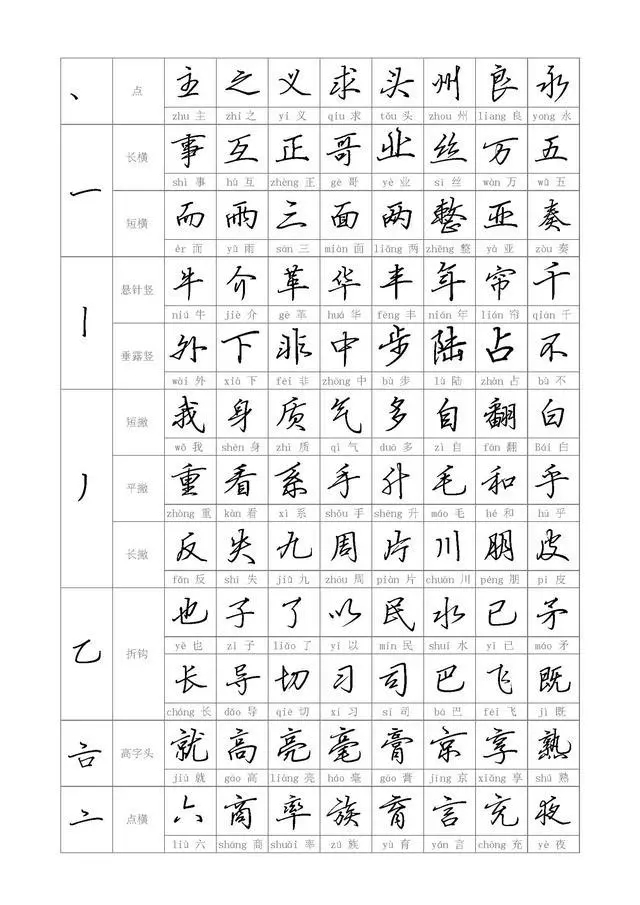 、 点 主 之 义 求 头 州 良 永
zhu 主 zhi 之 yi 义 qiu 求 tóu 头 zhou 州 liang 良 yong 永
一 长横 事 互 正 哥 业 丝 万 五
shì 事 hù 互 zhèng 正 gē 哥 yè 业 sī 丝 wàn 万 wǔ 五
短横 而 雨 三 面 两 整 亚 奏
ér 而 yǔ 雨 sān 三 miàn 面 liǎng 两 zhěng 整 yà 亚 zòu 奏
丨 悬针竖 牛 介 革 华 丰 年 帘 千
niú 牛 jiè 介 gé 革 huá 华 fēng 丰 nián 年 lián 帘 qiān 千
垂露竖 外 下 非 中 步 陆 占 不
wài 外 xià 下 fēi 非 zhōng 中 bù 步 lù 陆 zhàn 占 bù 不
丿 短撇 我 身 质 气 多 自 翻 白
wǒ 我 shēn 身 zhì 质 qì 气 duō 多 zì 自 fān 翻 Bái 白
平撇 重 看 系 手 升 毛 和 乎
zhòng 重 kàn 看 xì 系 shǒu 手 shēng 升 máo 毛 hé 和 hū 乎
长撇 反 失 九 周 片 川 朋 皮
fǎn 反 shī 失 jiǔ 九 zhōu 周 piàn 片 chuān 川 péng 朋 pí 皮
乙 折钩 也 子 了 以 民 水 已 矛
yě 也 zǐ 子 liǎo 了 yǐ 以 mín 民 shuǐ 水 yǐ 已 máo 矛
长 导 切 习 司 巴 飞 既
cháng 长 dǎo 导 qiē 切 xí 习 sī 司 bā 巴 fēi 飞 jì 既
高字头 就 高 亮 毫 膏 京 享 熟
jiù 就 gāo 高 liàng 亮 háo 毫 gāo 膏 jīng 京 xiǎng 享 shú 熟
亠 点横 六 商 率 族 育 言 充 夜
liù 六 shāng 商 shuài 率 zú 族 yù 育 yán 言 chōng 充 yè 夜